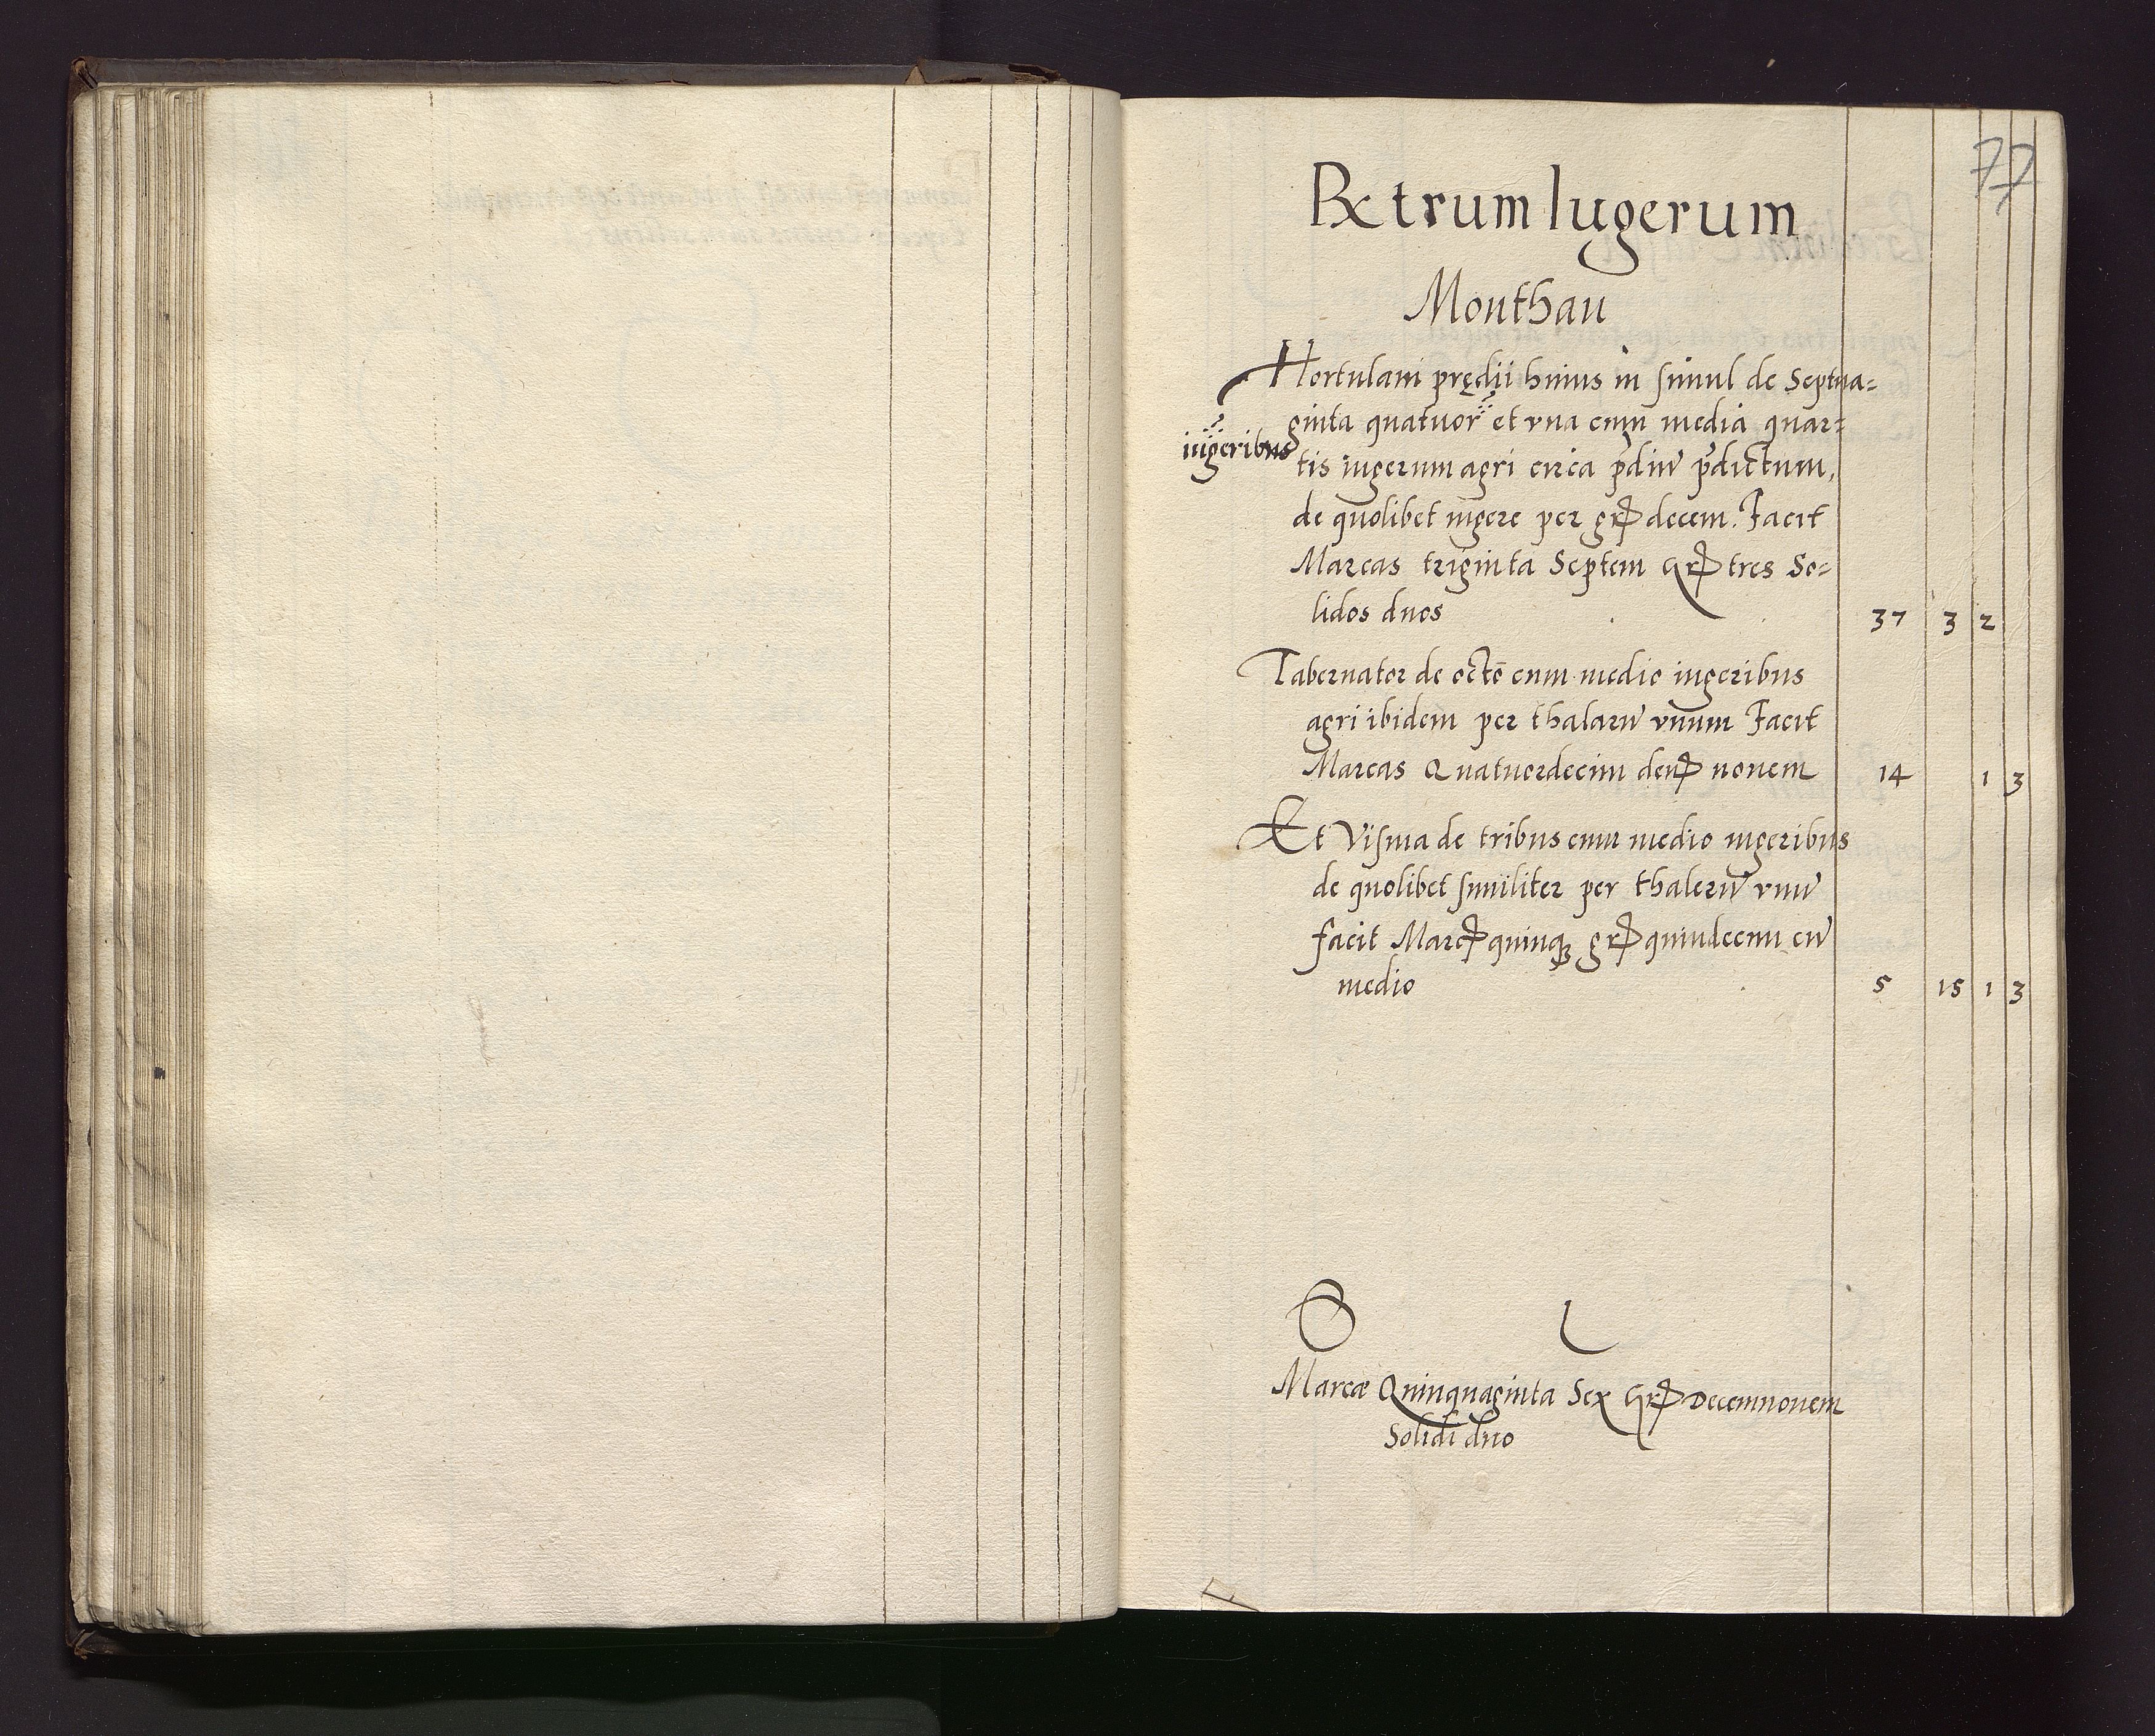 77
Rx trum Iugerum
Monthau
Hortulani prędii huius in simul de Septua=
ginta quatuor et vna cum media quar=
iugeribus
tis iugerum agri circa p̃diũ p̃dictum,
de quolibet iugere per grꝭ decem. Facit
Marcas triginta Septem Grꝭ tres So=
lidos duos 37 3 2
Tabernator de octõ cum medio iugeribus
agri ibidem per thalarũ vnum Facit
Marcas Quatuordecim denꝭ nouem 14 1 3
Et Visma de tribus cum medio iugeribus
de quolibet similiter per thalerũ vnũ
facit Marcꝭ quinqꝫ grꝭ quindecim cũ
medio 5 15 1 3
Marcæ Quinquaginta Sex Grꝭ Decemnouem
Solidi duo